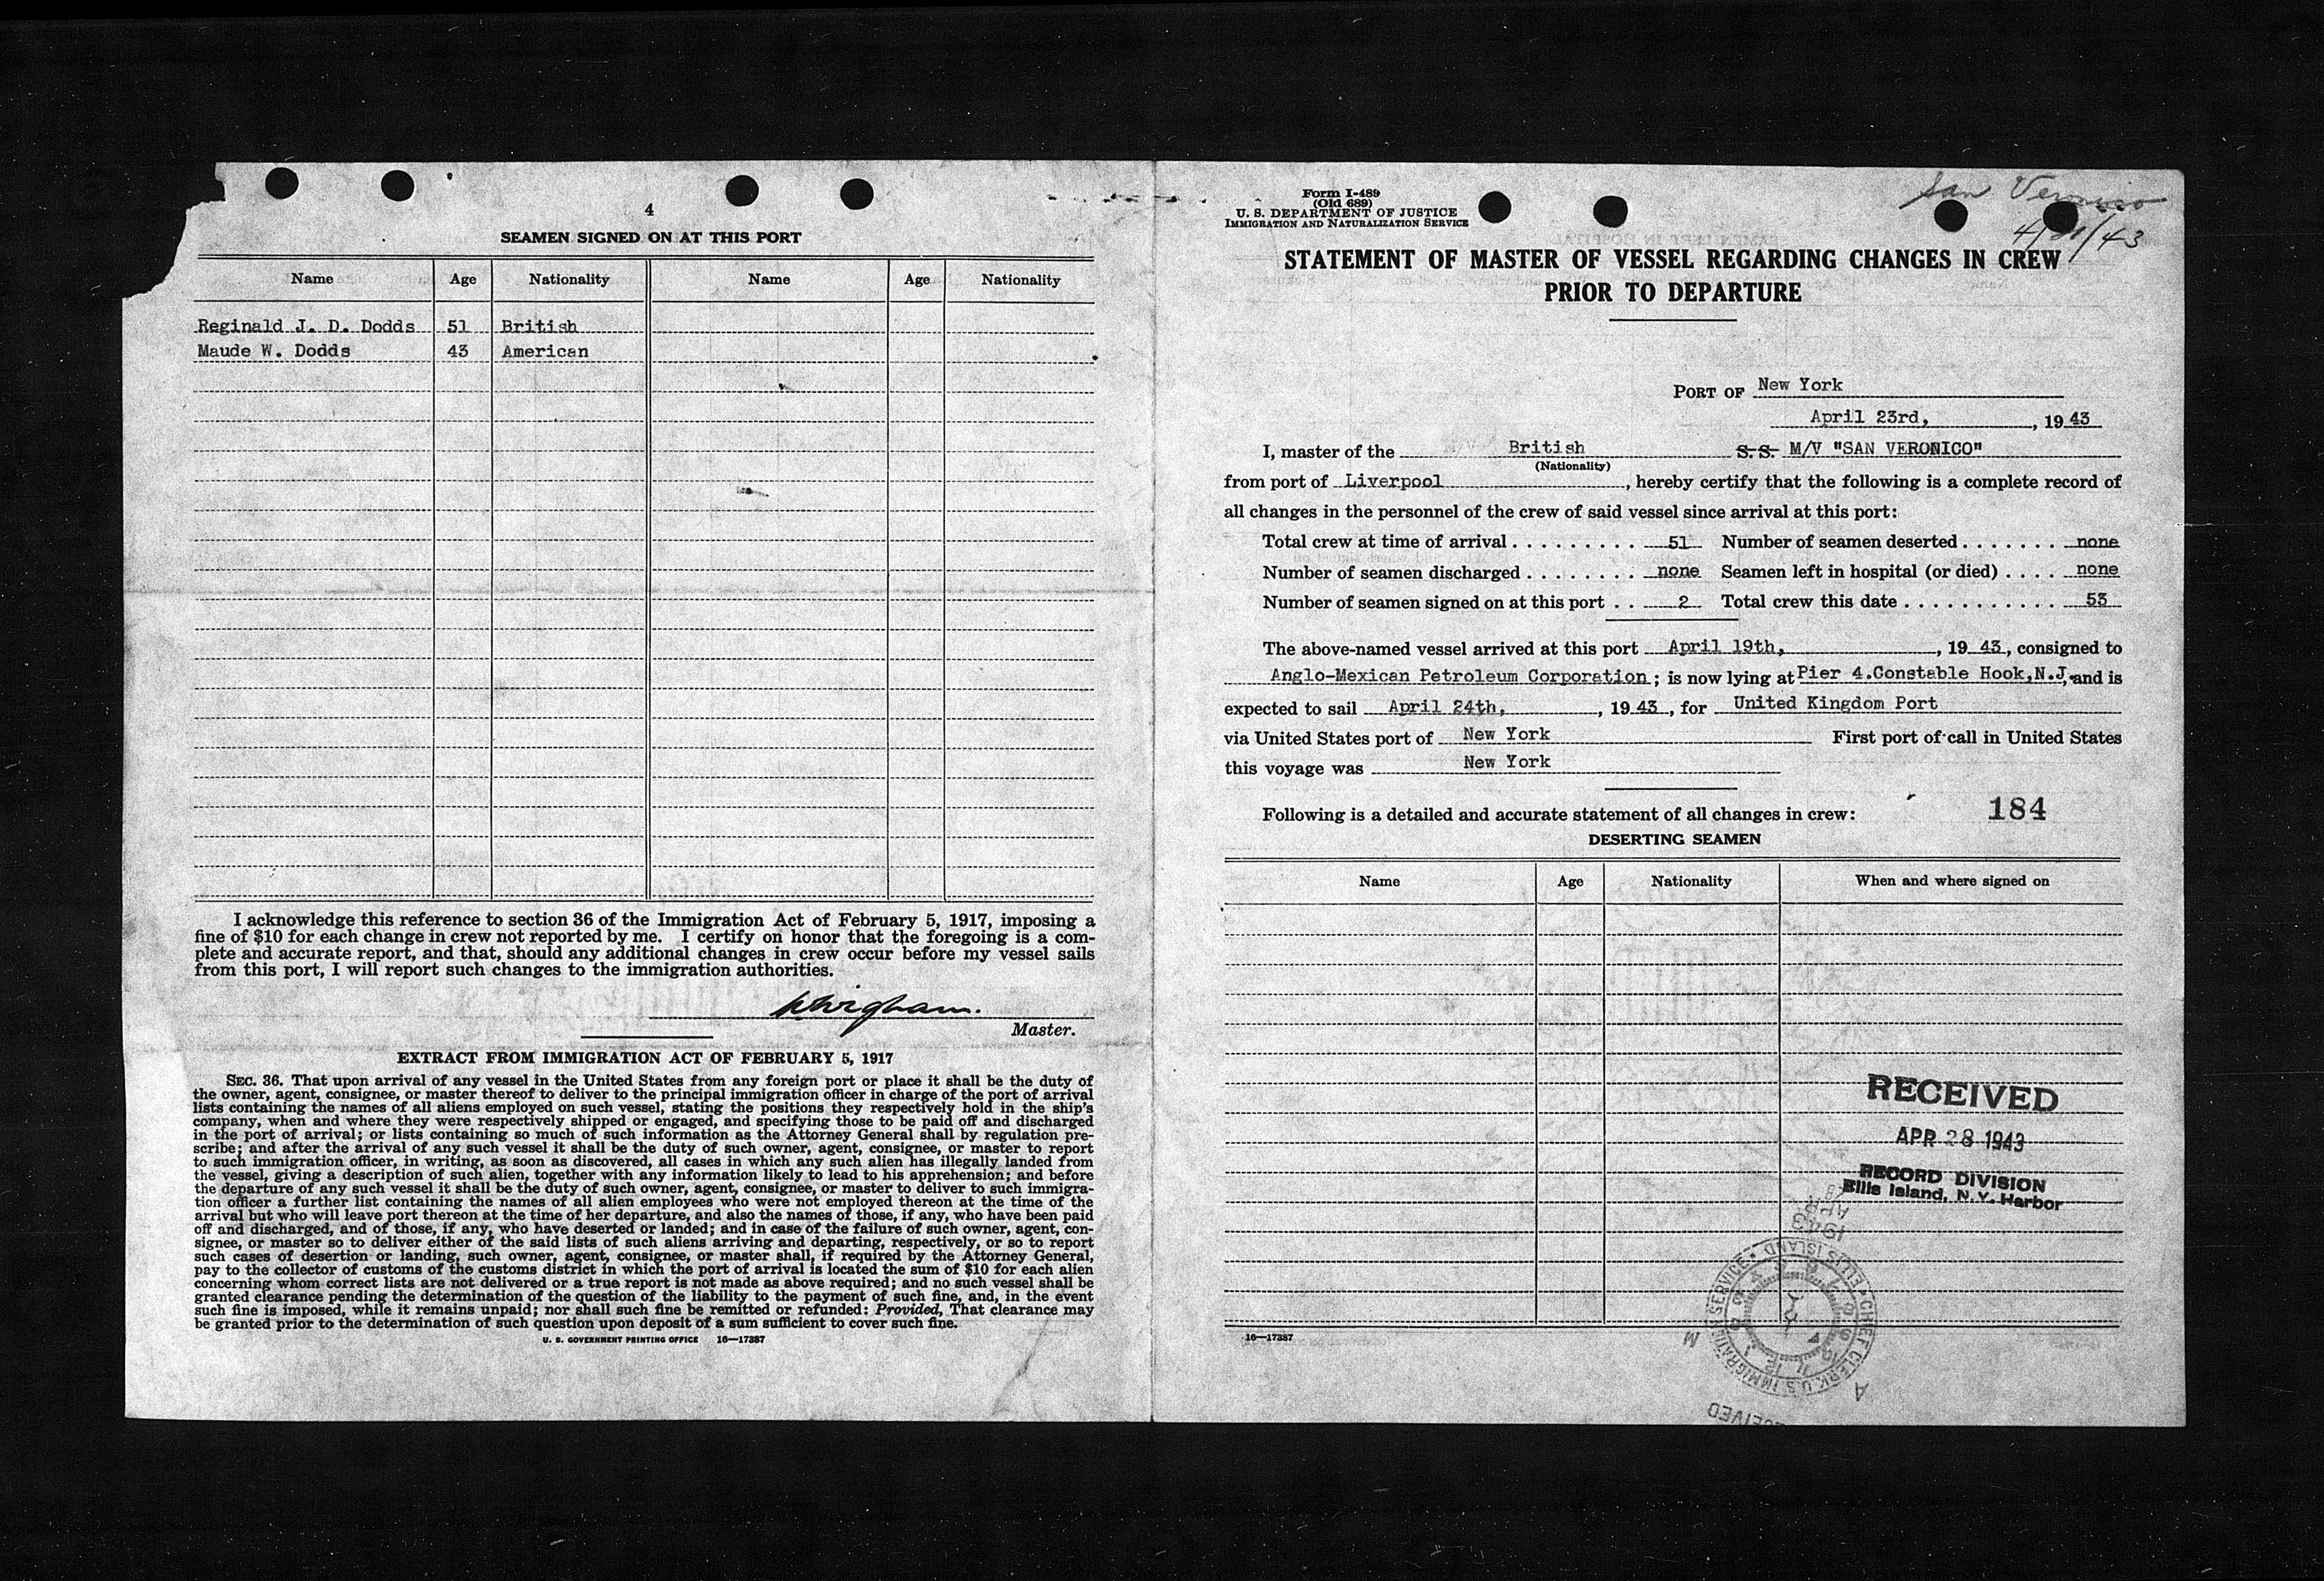 4
SEAMEN SIGNED ON AT THIS PORT
Name Age Nationality Name Age Nationality
Reginald J. D. Dodds 51 British
Maude W. Dodds 43 American
I acknowledge this reference to section 36 of the Immigration Act of February 5, 1917, imposing a
fine of $10 for each change in crew not reported by me. I certify on honor that the foregoing is a com-
plete and accurate report, and that, should any additional changes in crew occur before my vessel sails
from this port, I will report such changes to the immigration authorities.
Master.
EXTRACT FROM IMMIGRATION ACT OF FEBRUARY 5, 1917
SEC. 36. That upon arrival of any vessel in the United States from any foreign port or place it shall be the duty of
the owner, agent, consignee, or master thereof to deliver to the principal immigration officer in charge of the port of arrival
lists containing the names of all aliens employed on such vessel, stating the positions they respectively hold in the ship's
company, when and where they were respectively shipped or engaged, and specifying those to be paid off and discharged
in the port of arrival; or lists containing so much of such information as the Attorney General shall by regulation pre-
scribe; and after the arrival of any such vessel it shall be the duty of such owner, agent, consignee, or master to report
to such immigration officer, in writing, as soon as discovered, all cases in which any such alien has illegally landed from
the vessel, giving a description of such alien, together with any information likely to lead to his apprehension; and before
the departure of any such vessel it shall be the duty of such owner, agent, consignee, or master to deliver to such immigra-
tion officer a further list containing the names of all alien employees who were not employed thereon at the time of the
arrival but who will leave port thereon at the time of her departure, and also the names of those, if any, who have been paid
off and discharged, and of those, if any, who have deserted or landed; and in case of the failure of such owner, agent, con-
signee, or master so to deliver either of the said lists of such aliens arriving and departing, respectively, or so to report
such cases of desertion or landing, such owner, agent, consignee, or master shall, if required by the Attorney General,
pay to the collector of customs of the customs district in which the port of arrival is located the sum of $10 for each alien
concerning whom correct lists are not delivered or a true report is not made as above required; and no such vessel shall be
granted clearance pending the determination of the question of the liability to the payment of such fine, and, in the event
such fine is imposed, while it remains unpaid; nor shall such fine be remitted or refunded: Provided, That clearance may
be granted prior to the determination of such question upon deposit of a sum sufficient to cover such fine.
U. S. GOVERNMENT PRINTING OFFICE 16—17387
Form I-489
(Old 689)
U. S. DEPARTMENT OF JUSTICE
IMMIGRATION AND NATURALIZATION SERVICE
San Veronico
STATEMENT OF MASTER OF VESSEL REGARDING CHANGES IN CREW
PRIOR TO DEPARTURE
PORT OF New York
April 23rd, , 19 43
I, master of the British S. S. M/V "SAN VERONICO"
(Nationality)
from port of Liverpool , hereby certify that the following is a complete record of
all changes in the personnel of the crew of said vessel since arrival at this port:
Total crew at time of arrival . . . . . . . . . . 51 Number of seamen deserted . . . . . . . none
Number of seamen discharged . . . . . . . . none Seamen left in hospital (or died) . . . . none
Number of seamen signed on at this port . . 2 Total crew this date . . . . . . . . . . . . 53
The above-named vessel arrived at this port April 19th, , 19 43, consigned to
Anglo-Mexican Petroleum Corporation ; is now lying at Pier 4.Constable Hook,N.J, and is
expected to sail April 24th, , 19 43, for United Kingdom Port
via United States port of New York First port of call in United States
this voyage was New York
Following is a detailed and accurate statement of all changes in crew: 184
DESERTING SEAMEN
Name Age Nationality When and where signed on
RECEIVED
APR 28 1943
RECORD DIVISION
Ellis Island, N. Y. Harbor
APR
1943
CHIEF CLERK U.S. IMMIGRATION SERVICE • ELLIS ISLAND •
M
A
16—17387